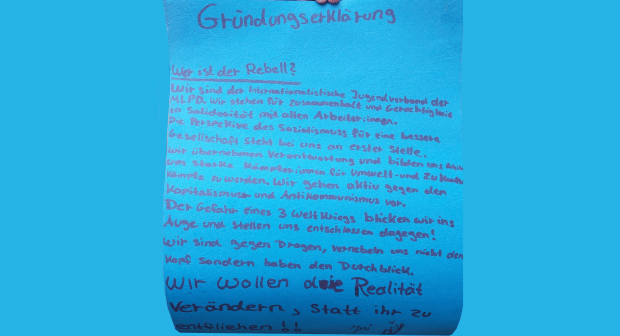 Gründungserklärung
Wer ist der Rebell?
Wir sind der Internationalistische Jugendverband der
MLPD. Wir stehen für Zusammenhalt und Gerechtigkeit
in Solidarität mit allen Arbeiter:innen.
Die Perspektive des Sozialismuss für eine bessere
Gesellschaft steht bei uns an erster Stelle.
Wir übernehmen Verantwortung und bilden uns
um starke Kämpfer:innen für Umwelt- und Zukunfts
kämpfe zu werden. Wir gehen aktiv gegen den
Kapitalismus und Antikommunismus vor.
Der Gefahr eines 3 Weltkriegs blicken wir ins
Auge und stellen uns entschlossen dagegen!
Wir sind gegen Drogen, vernebeln uns nicht den
Kopf sondern haben den Durchblick.
Wir wollen die Realität
verändern, statt ihr zu
entfliehen!!